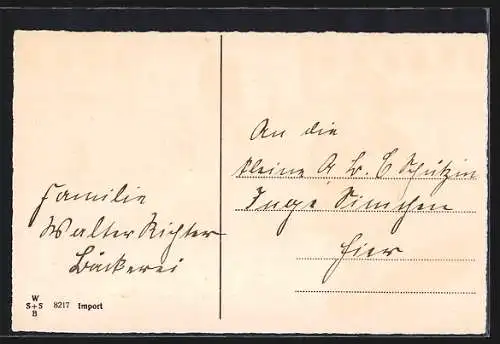 Familie
Walter Richter
Bäckerei
An die
kleine A. B. C Schützin
Inge Simchen
hier
W
S+S 8217 Import
B